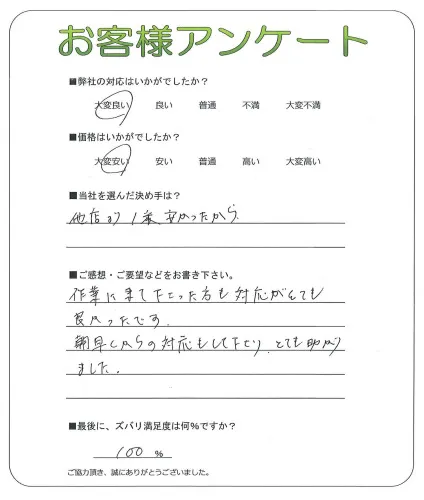 お客様アンケート
■弊社の対応はいかがでしたか?
大変良い 良い 普通 不満 大変不満
■価格はいかがでしたか?
大変安い 安い 普通 高い 大変高い
■当社を選んだ決め手は?
他店より1番安かったから
■ご感想・ご要望などをお書き下さい。
作業に来て下さった方も対応がとても
良かったです.
朝早くからの対応もして下さり、とても助かり
ました.
■最後に、ズバリ満足度は何%ですか?
100 %
ご協力頂き、誠にありがとうございました。